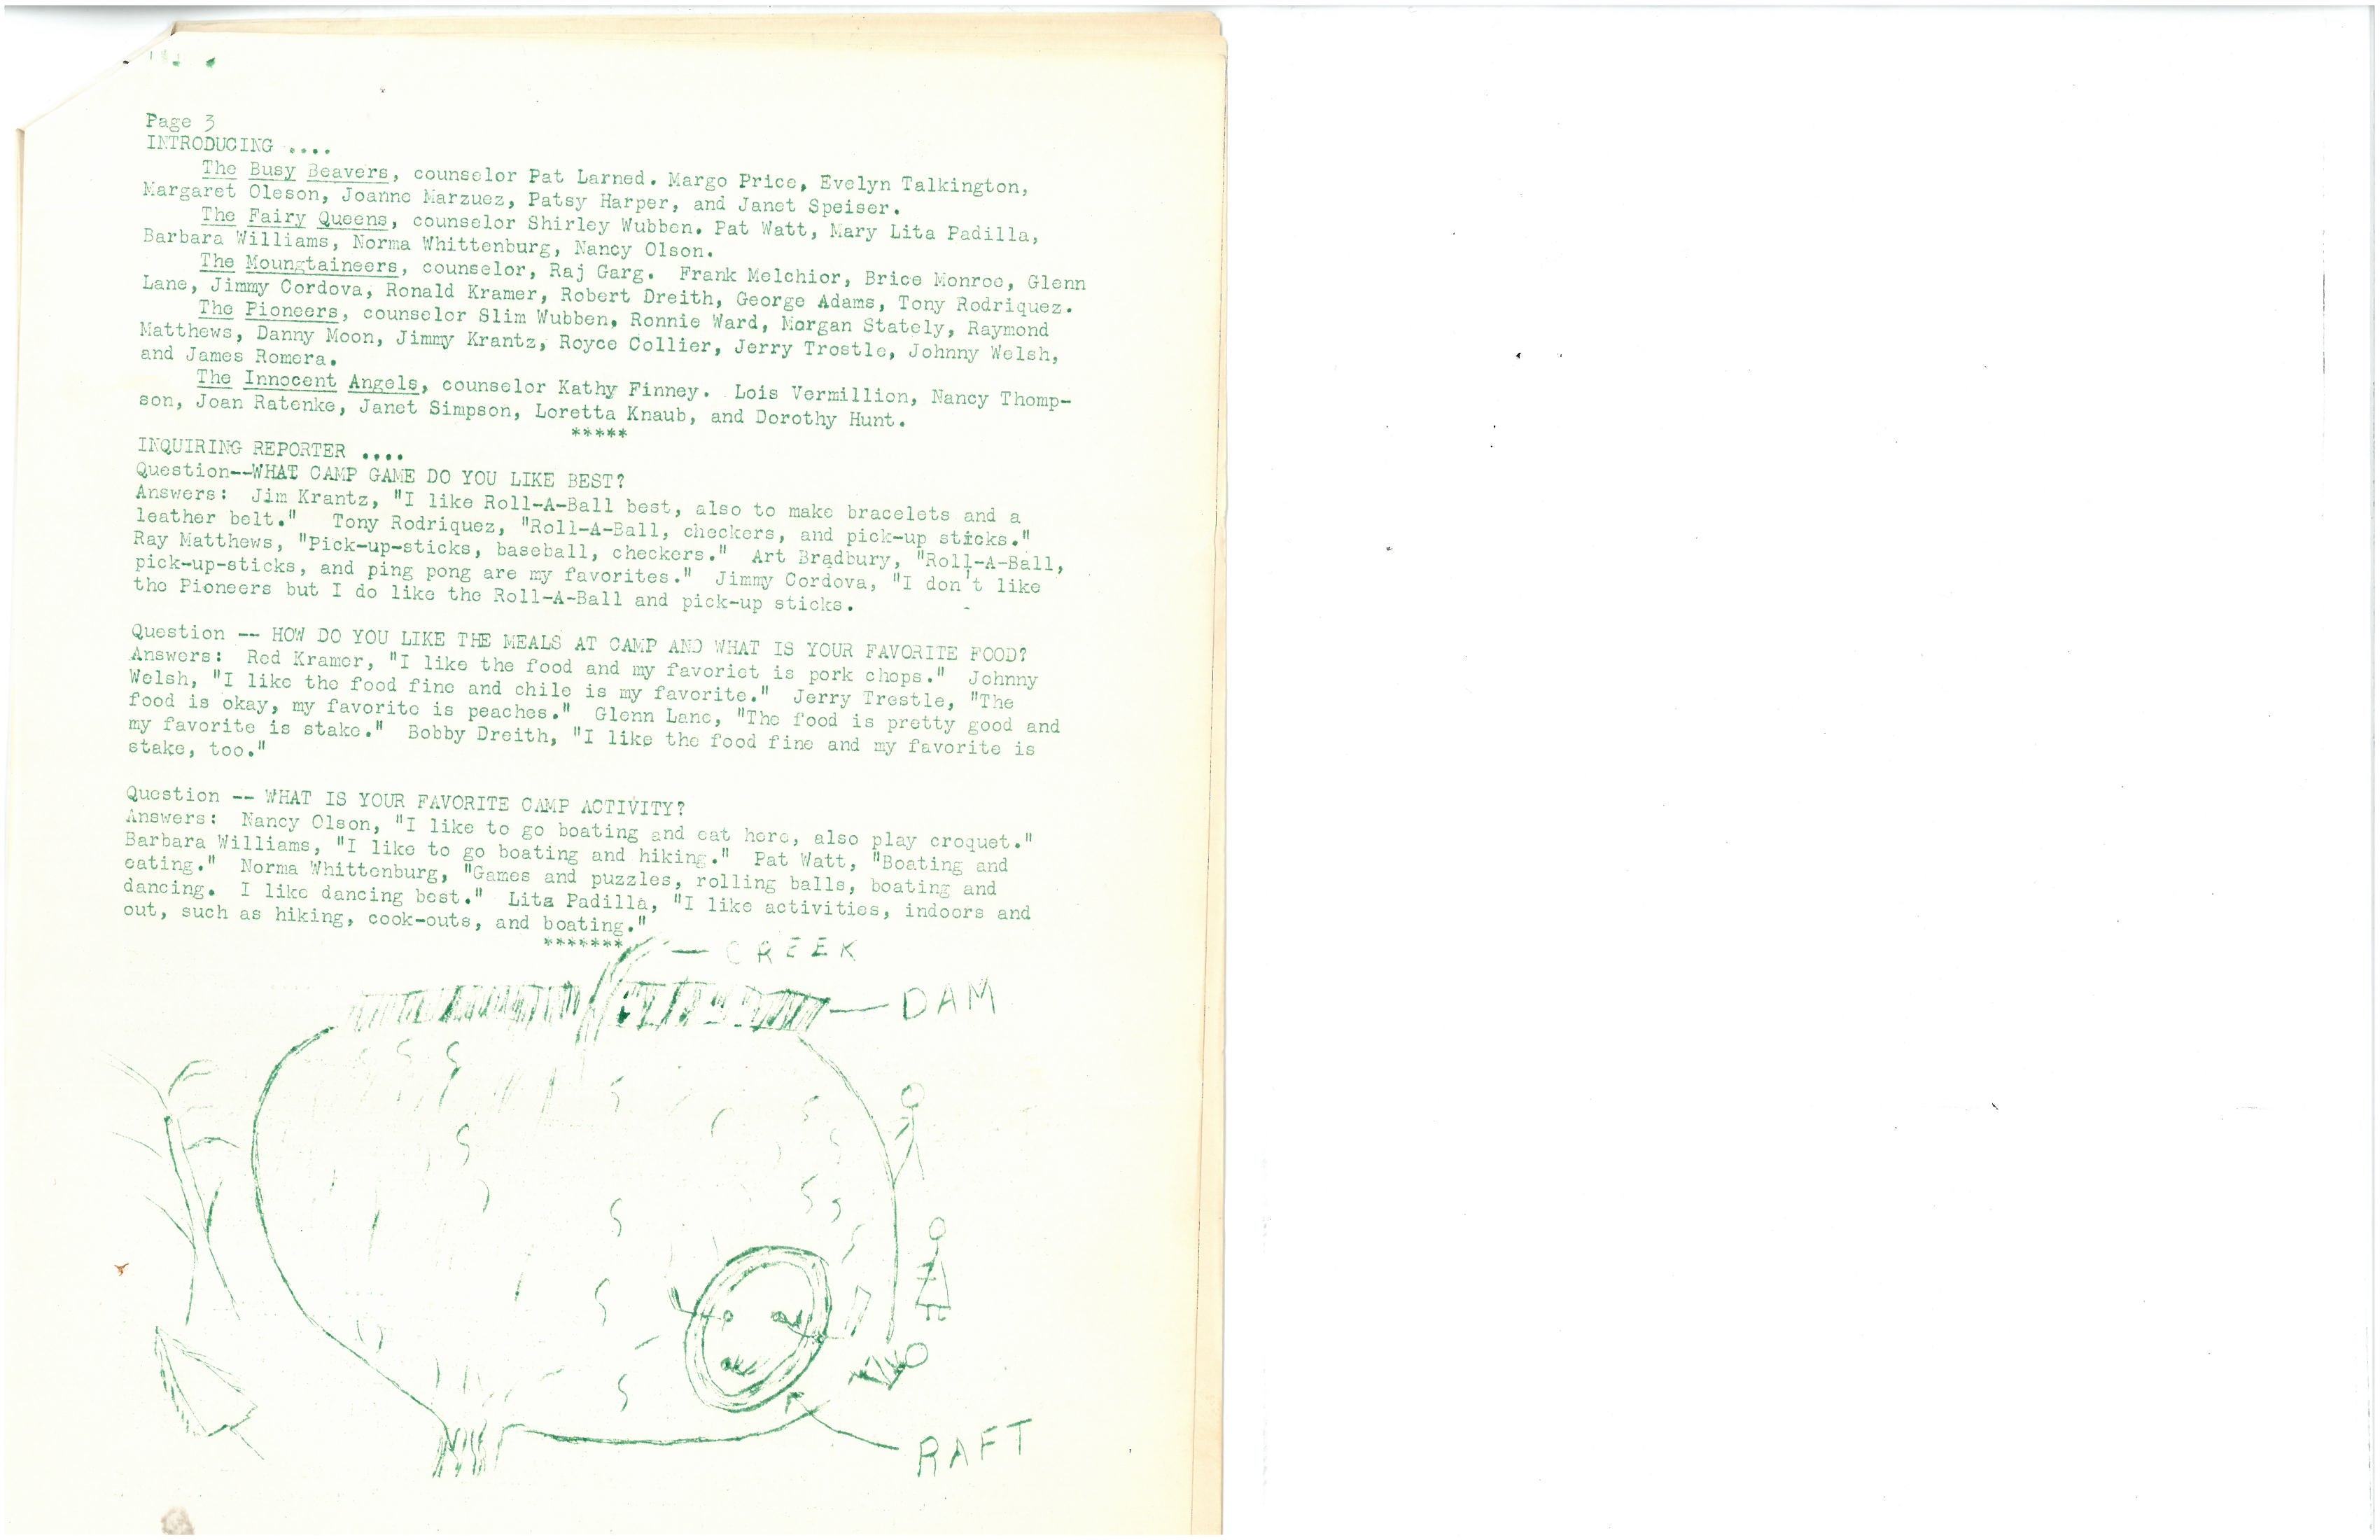 Page 3
INTRODUCING ....
The Busy Beavers, counselor Pat Larned. Margo Price, Evelyn Talkington,
Margaret Oleson, Joanne Marzuez, Patsy Harper, and Janet Speiser.
The Fairy Queens, counselor Shirley Wubben. Pat Watt, Mary Lita Padilla,
Barbara Williams, Norma Whittenburg, Nancy Olson.
The Moungtaineers, counselor, Raj Garg. Frank Melchior, Brice Monroe, Glenn
Lane, Jimmy Cordova, Ronald Kramer, Robert Dreith, George Adams, Tony Rodriquez.
The Pioneers, counselor Slim Wubben. Ronnie Ward, Morgan Stately, Raymond
Matthews, Danny Moon, Jimmy Krantz, Royce Collier, Jerry Trostle, Johnny Welsh,
and James Romera.
The Innocent Angels, counselor Kathy Finney. Lois Vermillion, Nancy Thomp-
son, Joan Ratenke, Janet Simpson, Loretta Knaub, and Dorothy Hunt.
*****
INQUIRING REPORTER ....
Question--WHAT CAMP GAME DO YOU LIKE BEST?
Answers: Jim Krantz, "I like Roll-A-Ball best, also to make bracelets and a
leather belt." Tony Rodriquez, "Roll-A-Ball, checkers, and pick-up sticks."
Ray Matthews, "Pick-up-sticks, baseball, checkers." Art Bradbury, "Roll-A-Ball,
pick-up-sticks, and ping pong are my favorites." Jimmy Cordova, "I don't like
the Pioneers but I do like the Roll-A-Ball and pick-up sticks.
Question -- HOW DO YOU LIKE THE MEALS AT CAMP AND WHAT IS YOUR FAVORITE FOOD?
Answers: Red Kramer, "I like the food and my favoriet is pork chops." Johnny
Welsh, "I like the food fine and chile is my favorite." Jerry Trestle, "The
food is okay, my favorite is peaches." Glenn Lane, "The food is pretty good and
my favorite is stake." Bobby Dreith, "I like the food fine and my favorite is
stake, too."
Question -- WHAT IS YOUR FAVORITE CAMP ACTIVITY?
Answers: Nancy Olson, "I like to go boating and eat here, also play croquet."
Barbara Williams, "I like to go boating and hiking." Pat Watt, "Boating and
eating." Norma Whittenburg, "Games and puzzles, rolling balls, boating and
dancing. I like dancing best." Lita Padilla, "I like activities, indoors and
out, such as hiking, cook-outs, and boating."
*******
CREEK
DAM
RAFT